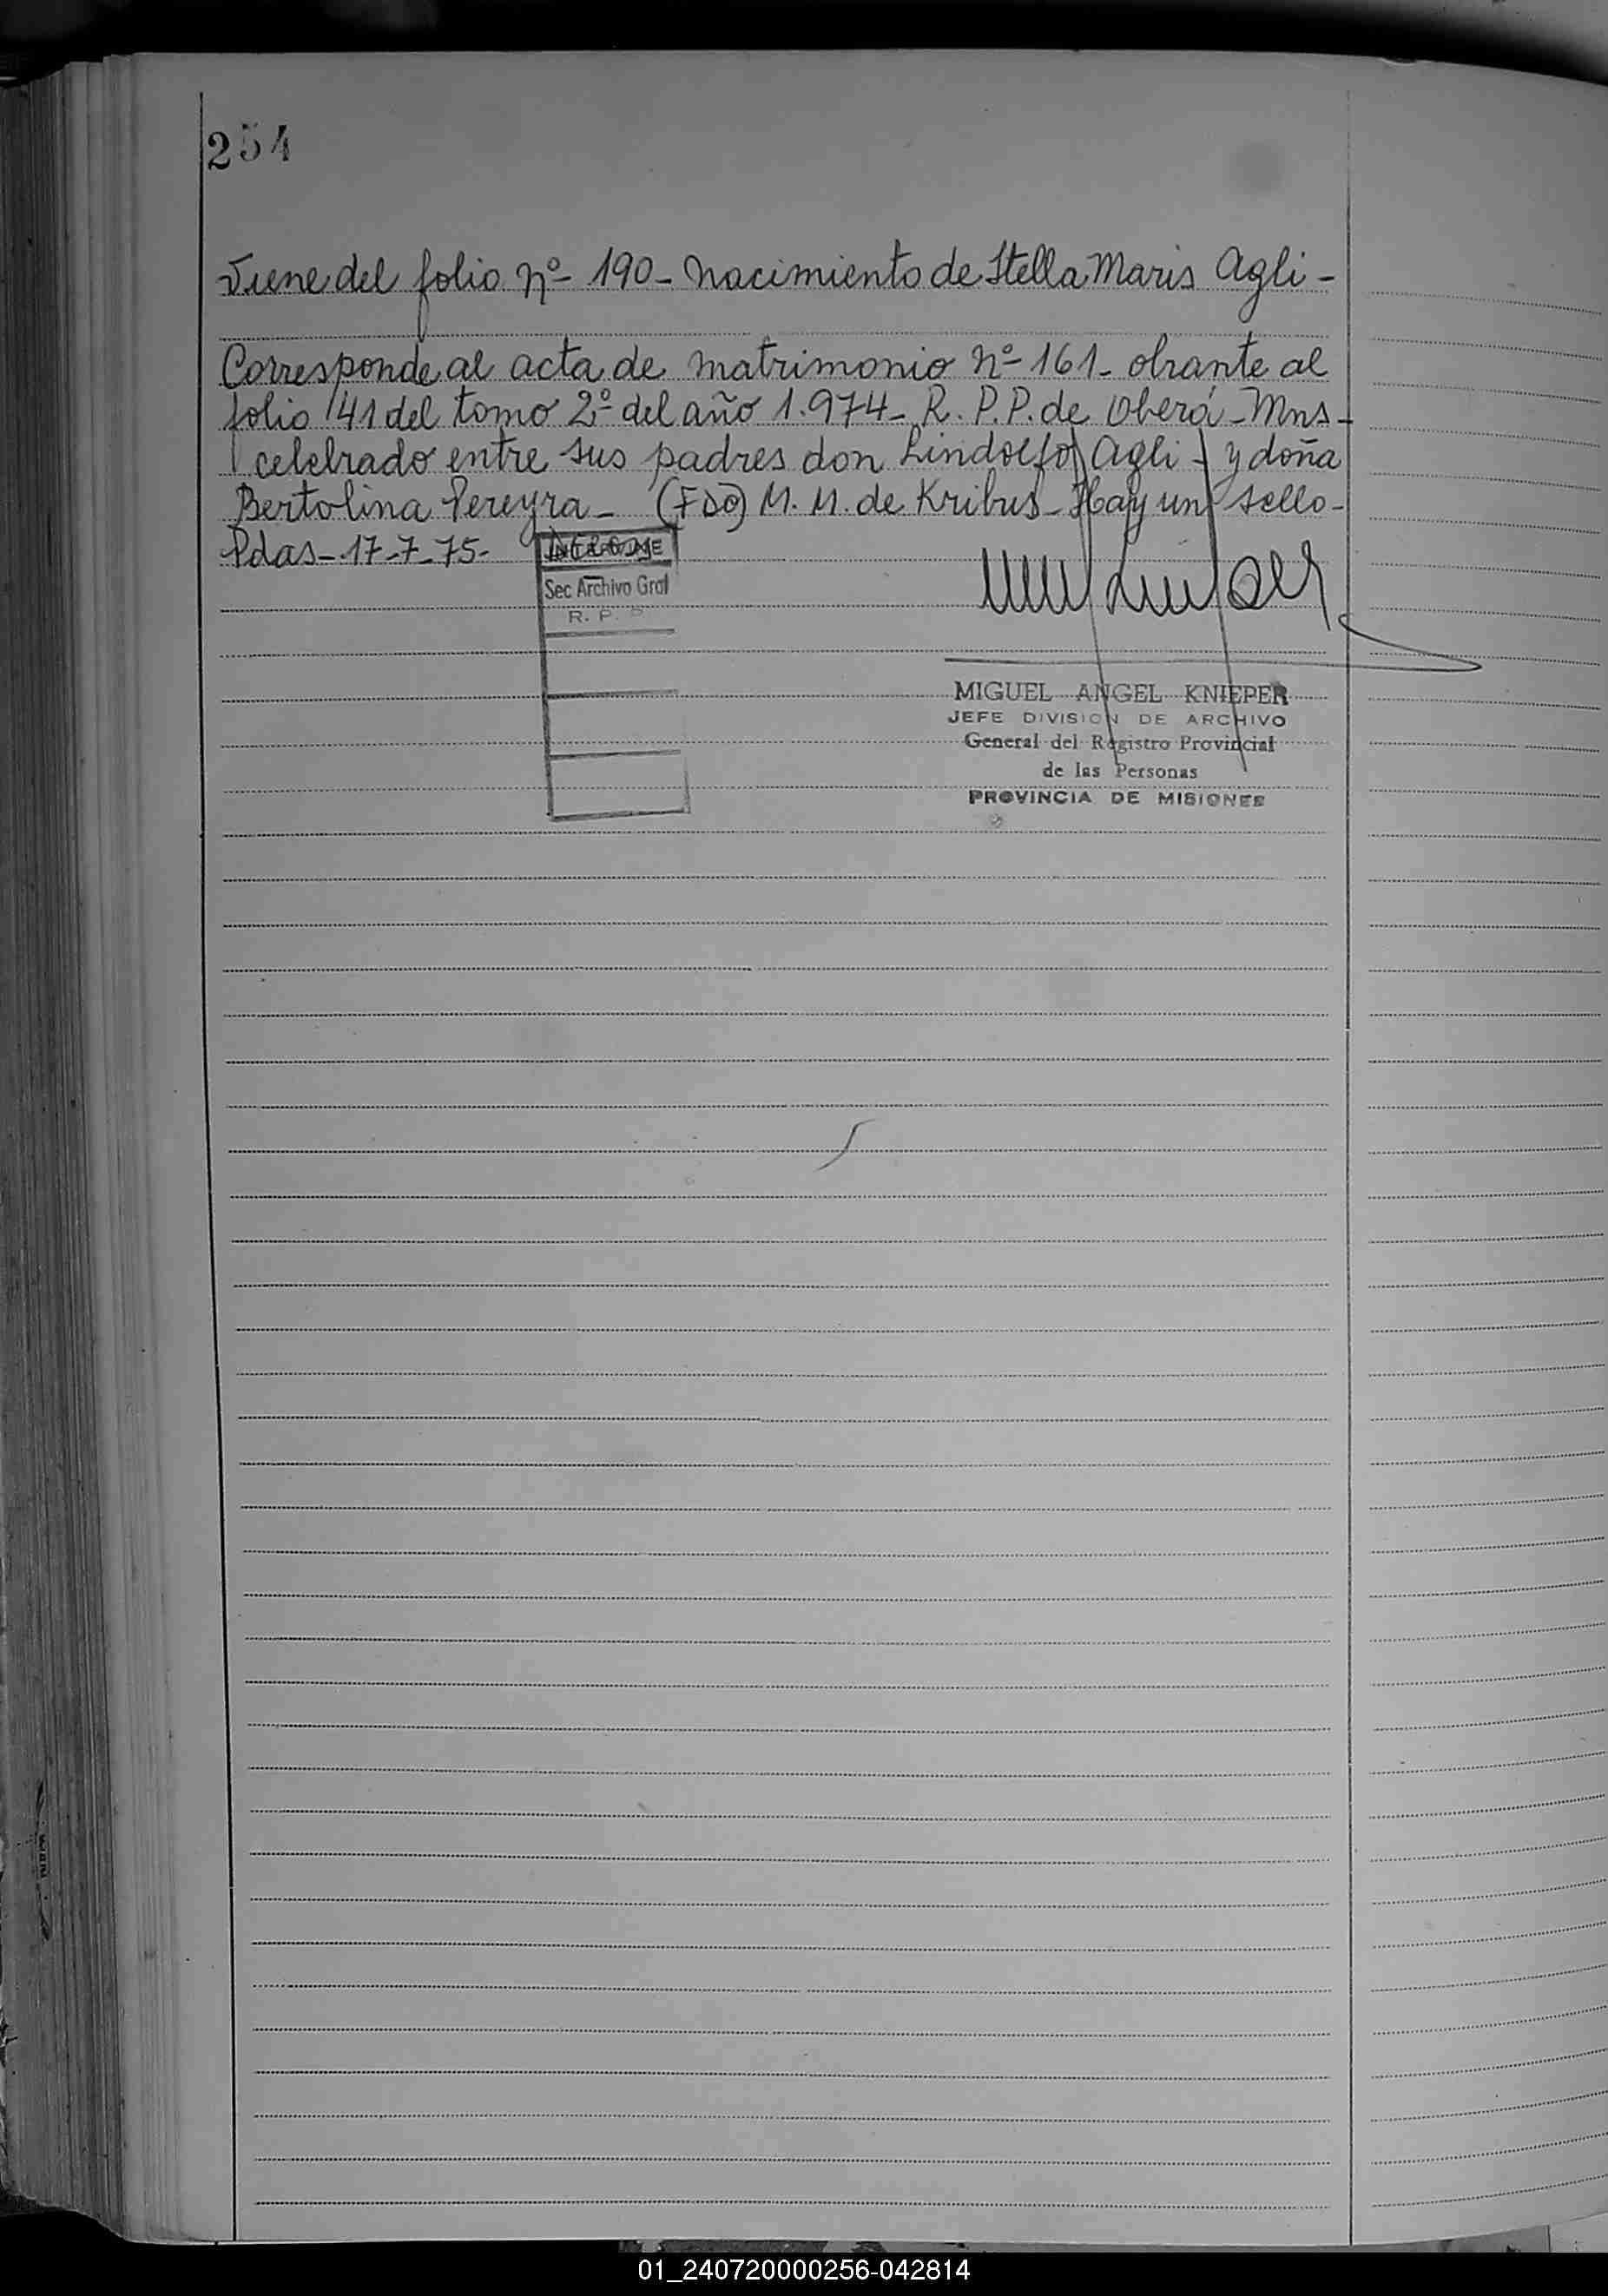 254
Viene del folio Nº- 190- Nacimiento de Stella Maris Agli-
Corresponde al acta de matrimonio Nº- 161- obrante al
folio 141 del tomo 2º- del año 1.974- R.P.P. de Oberá- Mns-
celebrado entre sus padres don Lindolfo Agli- y doña
Bertolina Pereyra- (FDO) M. M. de Kribus- Hay un sello-
Pdas- 17-7-75-
Sec Archivo Gral
R. P. P
MIGUEL ANGEL KNIEPER
JEFE DIVISION DE ARCHIVO
General del Registro Provincial
de las Personas
PROVINCIA DE MISIONES
01_240720000256-042814